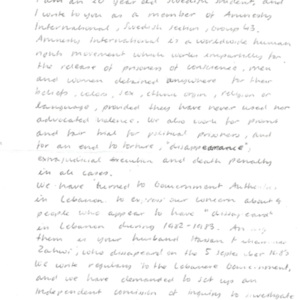 I am an 20 year old Swedish student, and
I write to you as a member of Amnesty
International, Swedish section, group 43.
Amnesty International is a worldwide human
rights movement which works impartially for
the release of prisoners of conscience, men
and women detained anywhere for their
beliefs, color, sex, ethnic origin, religion or
language, provided they have never used nor
advocated violence. We also work for prompt
and fair trial for political prisoners, and
for an end to torture, "disappearance",
extrajudicial execution and death penalty
in all cases.
We have turned to Government
in Lebanon to our concern about
people who appear to have "disappeared"
in Lebanon during 1982-1983.
them is your husband
who disappeared on the 5 september
We work regularly to the Lebanese Government,
and we have demanded to set up an
independent commission of inquiry to investigate